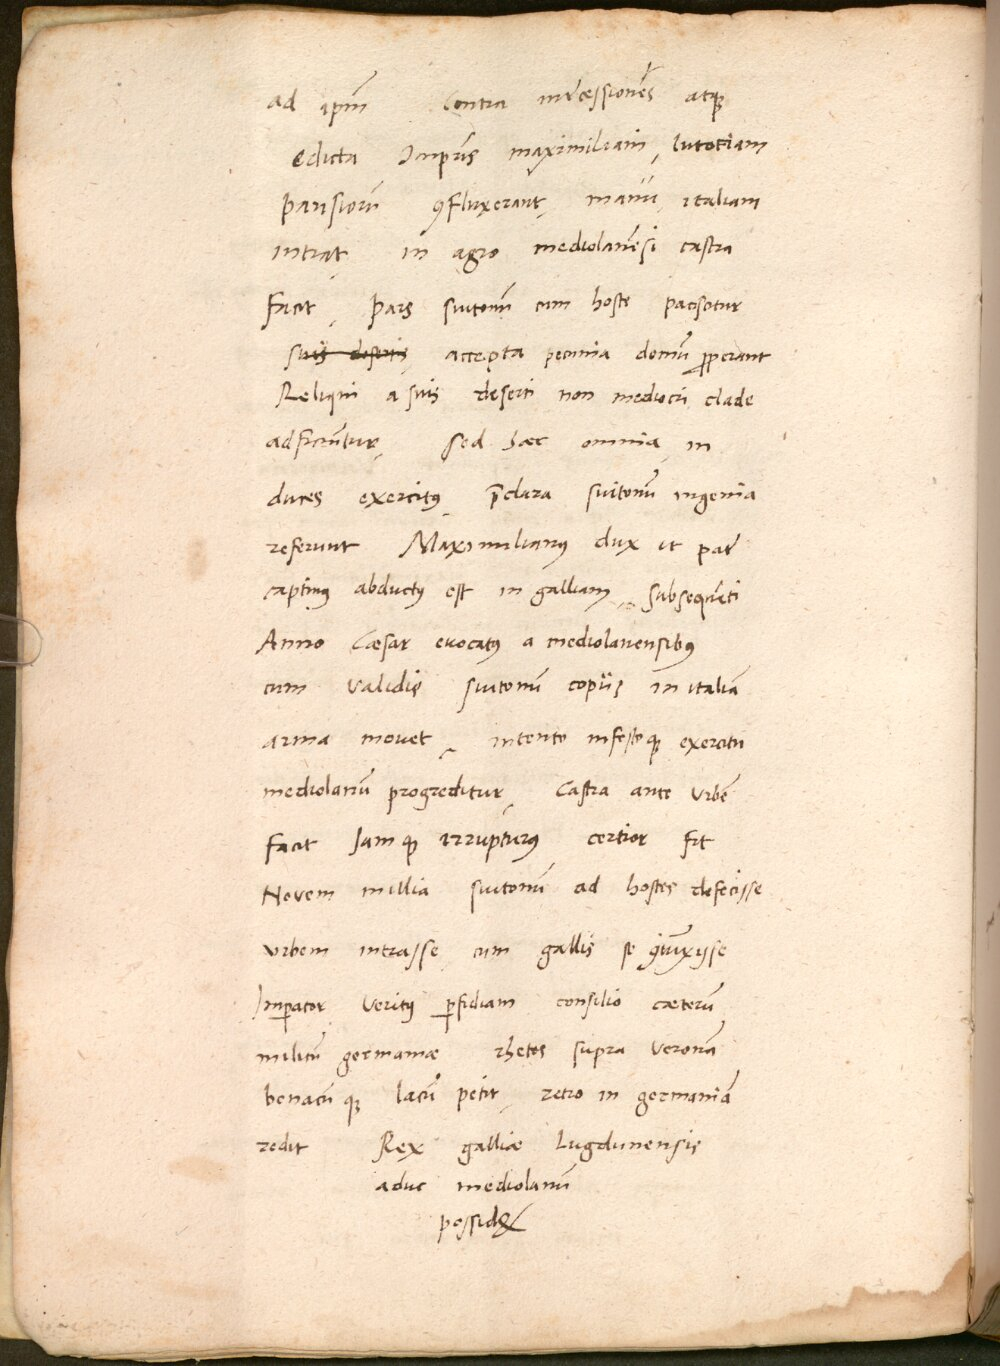 ad ipm̄ Contra intcessionēs atqȝ
edicta Impr̄is maximiliani, lutotiam
Parisiorū ꝯfluxerant, manu italiam
intrat, in agro mediolanēsi castra
Facit, Pars suitorum cum hoste paciscitur
suis desertis, accepta pecunia domū ꝓperant
Reliqui a suis deserti non mediocri clade
adficiūtur, sed hæc omnia, in
duces exercitꝰ, p̄clara suitorū ingenia
referunt Maximilianꝰ dux ut pat̄
captiuꝰ abductꝰ est in galliam, Subsequēti
Anno Cæsar euocatꝰ a mediolanensibꝰ
cum validis suitorū copiis in italiā
arma mouet, intento infestoqȝ exercitu
mediolanū progreditur, Castra ante vrbē
facit Iamqȝ irrupturus, certior fit
Novem millia suitorū ad hostes defecisse
vrbem intrasse, cum gallis se ꝯiūxisse
Imꝑator, Veritꝰ ꝑfidiam consilio cæterū
militū germaniæ rhetos supra Veronā
benacūqȝ lacū petit, retro in germaniā
redit Rex galliæ Lugdunensis
aduc mediolanū
possidet